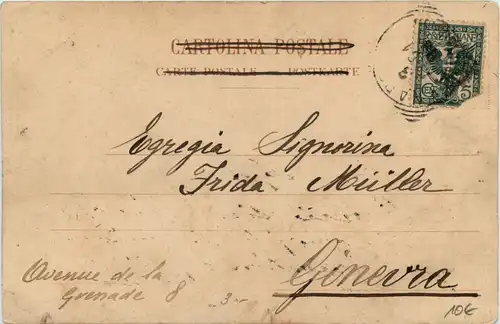 CARTOLINA POSTALE
CARTE POSTALE POSTKARTE
5
Egregia Signorina
Frida Müller
Ginevra
Avenue de la
Grenade 8
3
10€